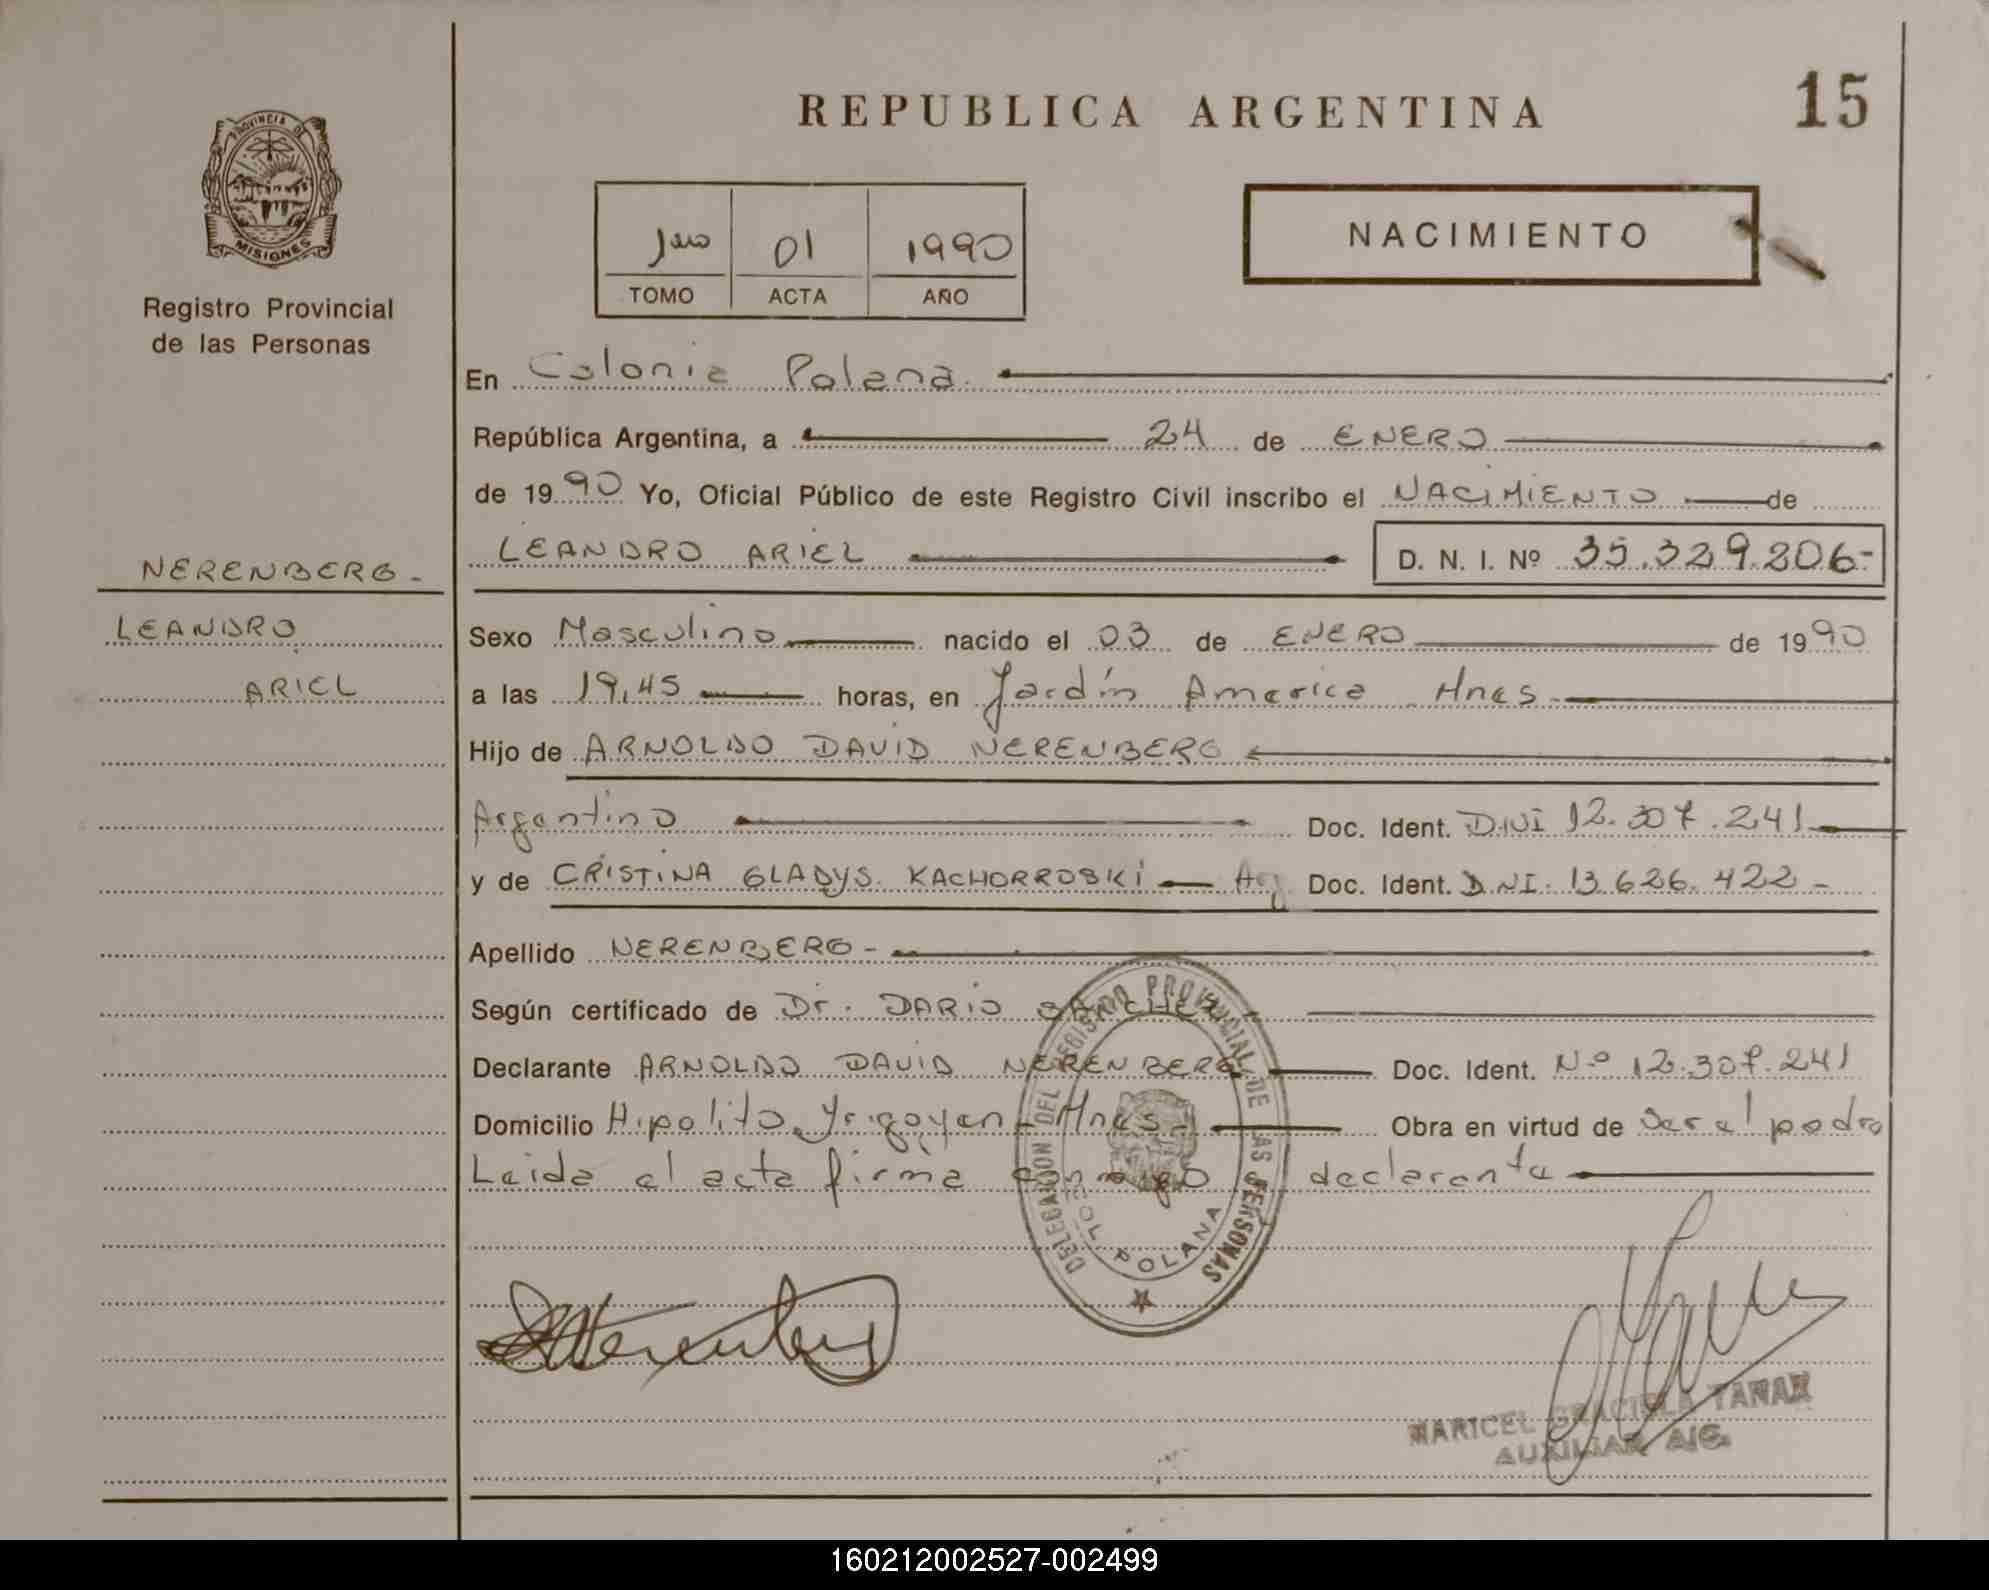 REPUBLICA ARGENTINA
15
PROVINCIA DE
MISIONES
Registro Provincial
de las Personas
01 1990
TOMO ACTA AÑO
NACIMIENTO
En Colonia Polana.
República Argentina, a 24 de ENERO
de 1990 Yo, Oficial Público de este Registro Civil inscribo el NACIMIENTO de
LEANDRO ARIEL D. N. I. Nº 35.329.206-
NERENBERG-
LEANDRO
ARIEL
Sexo Masculino nacido el 03 de ENERO de 1990
a las 19,45 horas, en Jardín America Mnes
Hijo de ARNOLDO DAVID NERENBERG
Argentino Doc. Ident. DNI 12.307.241
y de CRISTINA GLADYS KACHORROSKI Arg Doc. Ident. DNI. 13.626.422-
Apellido NERENBERG-
Según certificado de Dr. DARIO SANCHEZ
Declarante ARNOLDO DAVID NERENBERG Doc. Ident. Nº 12.307.241
Domicilio Hipolito Yrigoyen - Mnes- Obra en virtud de ser el padre
Leida el acta firma conmigo declarante
DELEGACION DEL REGISTRO PROVINCIAL DE LAS PERSONAS
COL. POLANA
MARICEL GRACIELA TANAK
AUXILIAR A/C.
160212002527-002499